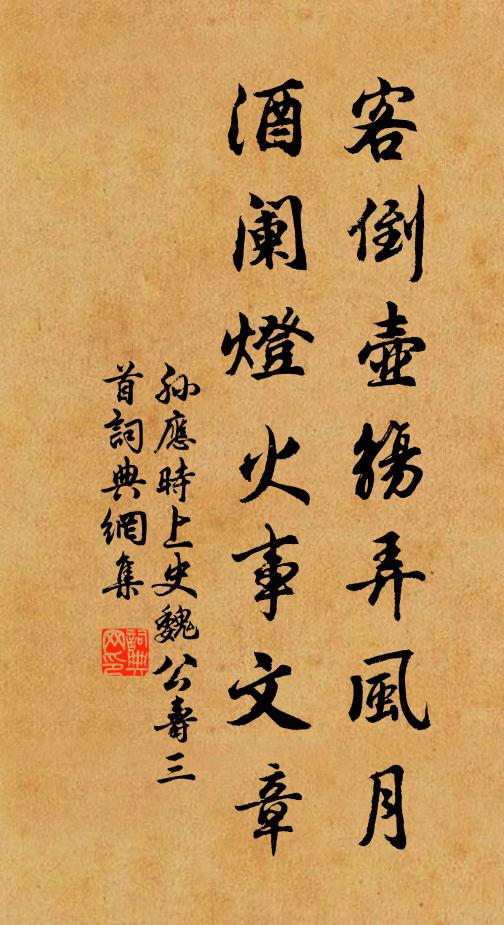 客倒壺觴弄風月
酒闌燈火事文章
孫應時上史魏公壽三
首詞典網集
詞典网印